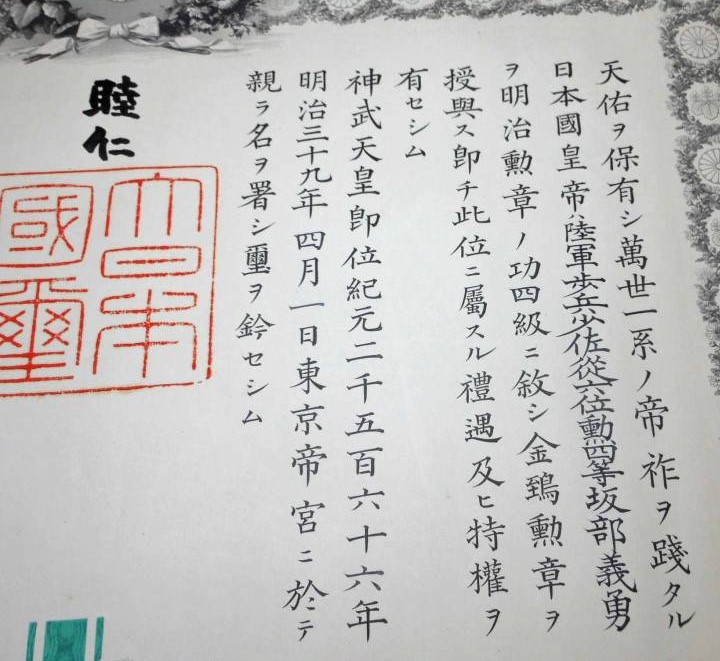 天佑ヲ保有シ萬世一系ノ帝祚ヲ踐タル
日本國皇帝ハ陸軍歩兵少佐從六位勳四等坂部義勇
ヲ明治勳章ノ功四級ニ敘シ金鵄勳章ヲ
授與ス即チ此位ニ屬スル禮遇及ヒ特權ヲ
有セシム
神武天皇即位紀元二千五百六十六年
明治三十九年四月一日東京帝宮ニ於テ
親ラ名ヲ署シ璽ヲ鈐セシム
睦仁
大日本
國璽